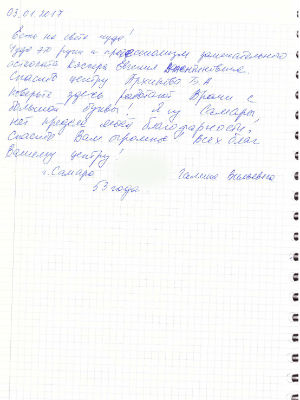 03.01.2017
Есть на свете чудо!
Чудо это руки и профессионализм замечательного
остеопата Евгения
Спасибо центру Б.А.
поверьте здесь работают Врачи с
большой буквы! Я из Самары,
нет предела моей благодарности!
Спасибо Вам огромное. Всех благ
Вашему центру!
г. Самара Галина Васильевна
53 года